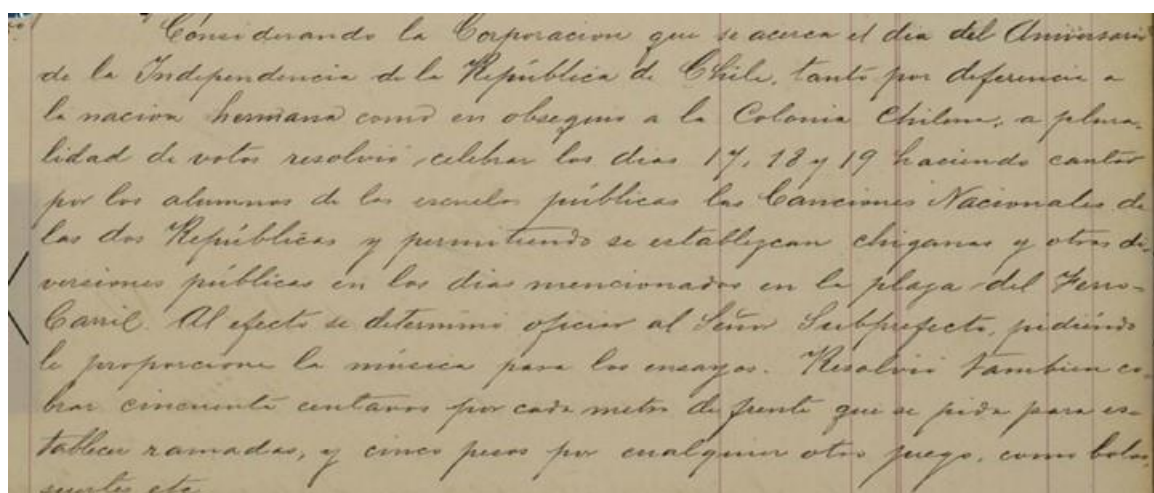 Considerando la Corporacion que se acerca el dia del Aniversario
de la Independencia de la República de Chile, tanto por deferencia a
la nacion hermana como en obsequio a la Colonia Chilena, a plura-
lidad de votos resolvió celebrar los dias 17, 18 y 19 haciendo cantar
por los alumnos de las escuelas públicas las Canciones Nacionales de
las dos Repúblicas y permitiendo se establezcan chiganas y otras di-
versiones públicas en los dias mencionados en la plaza del Ferro-
Carril. Al efecto se determinó oficiar al Señor Subprefecto, pidiendo
le proporcione la música para los ensayos. Resolvió tambien co-
brar cincuenta centavos por cada metro de frente que se pida para es-
tablecer ramadas, y cinco pesos por cualquier otro juego, como bolos,
suertes etc.